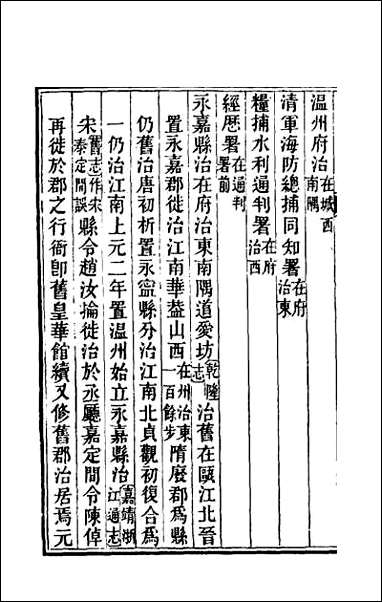 溫州府治在城西南隅
清軍海防總捕同知署在府治東
糧捕水利通判署在府治西
經歷署在通判署前
永嘉縣治在府治東南隅道愛坊乾隆志治舊在甌江北晉
置永嘉郡徙治江南華葢山西在州治東一百餘步隋廢郡爲縣
仍舊治唐初析置永寧縣分治江南北貞觀初復合爲
一仍治江南上元二年置溫州始立永嘉縣治嘉靖浙江通志
宋舊志作宋泰定間誤縣令趙汝掄徙治於丞廳嘉定間令陳倬
再徙於郡之行衙卽舊皇華館續又修舊郡治居焉元